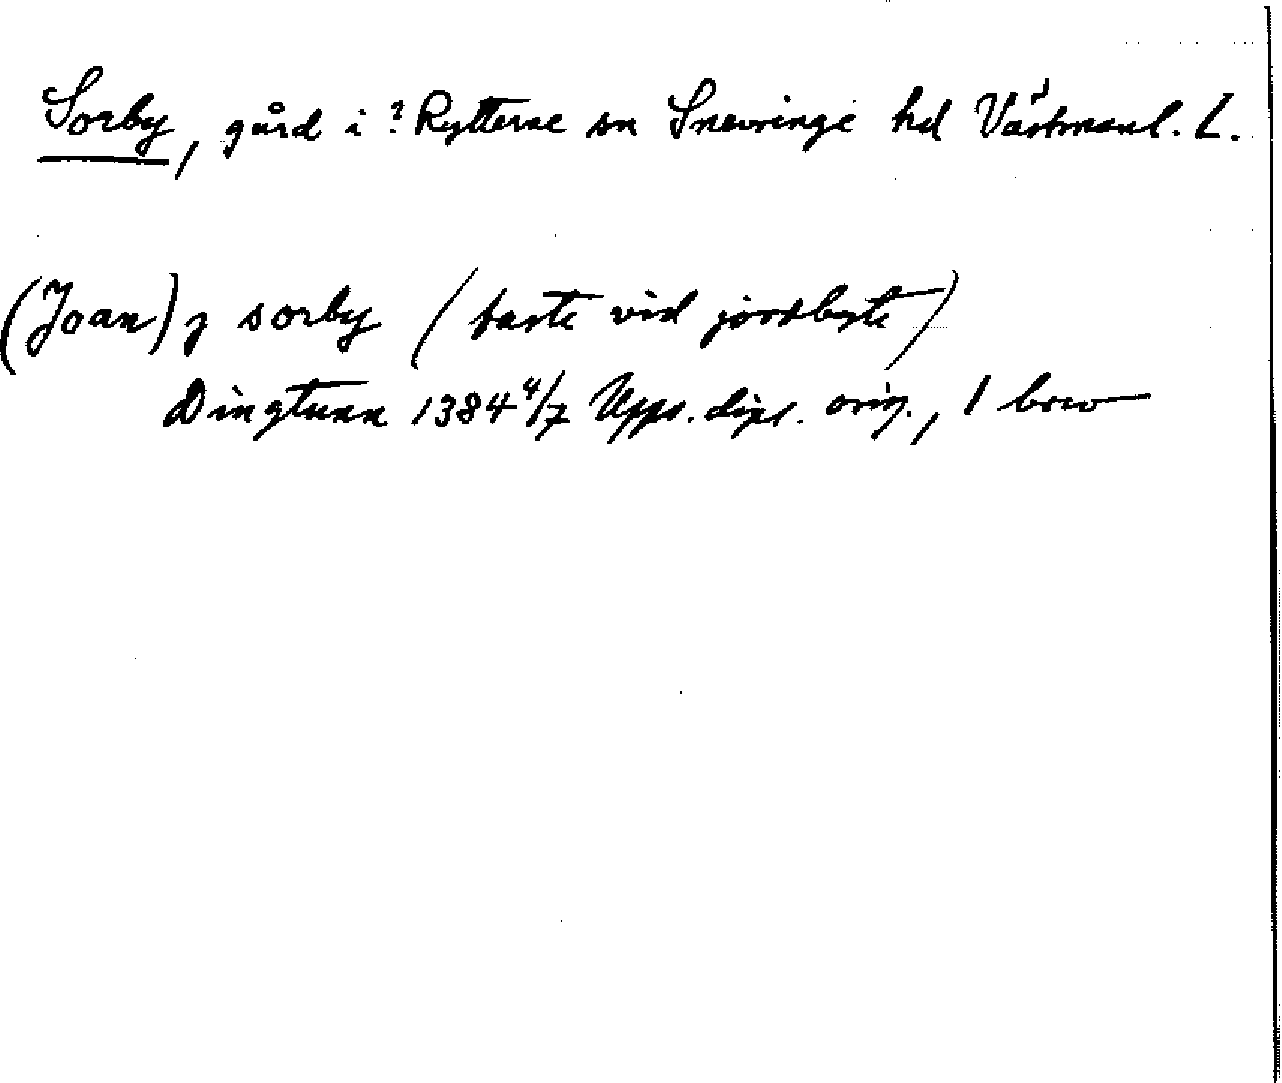 Sorby, gård i ? Rytterne sn Snevringe hd Västmanl. L.
(Joan) j sorby (faste vid jordbyte)
Dingtuna 1384 4/7 Upps. dipl. orig., 1 brev